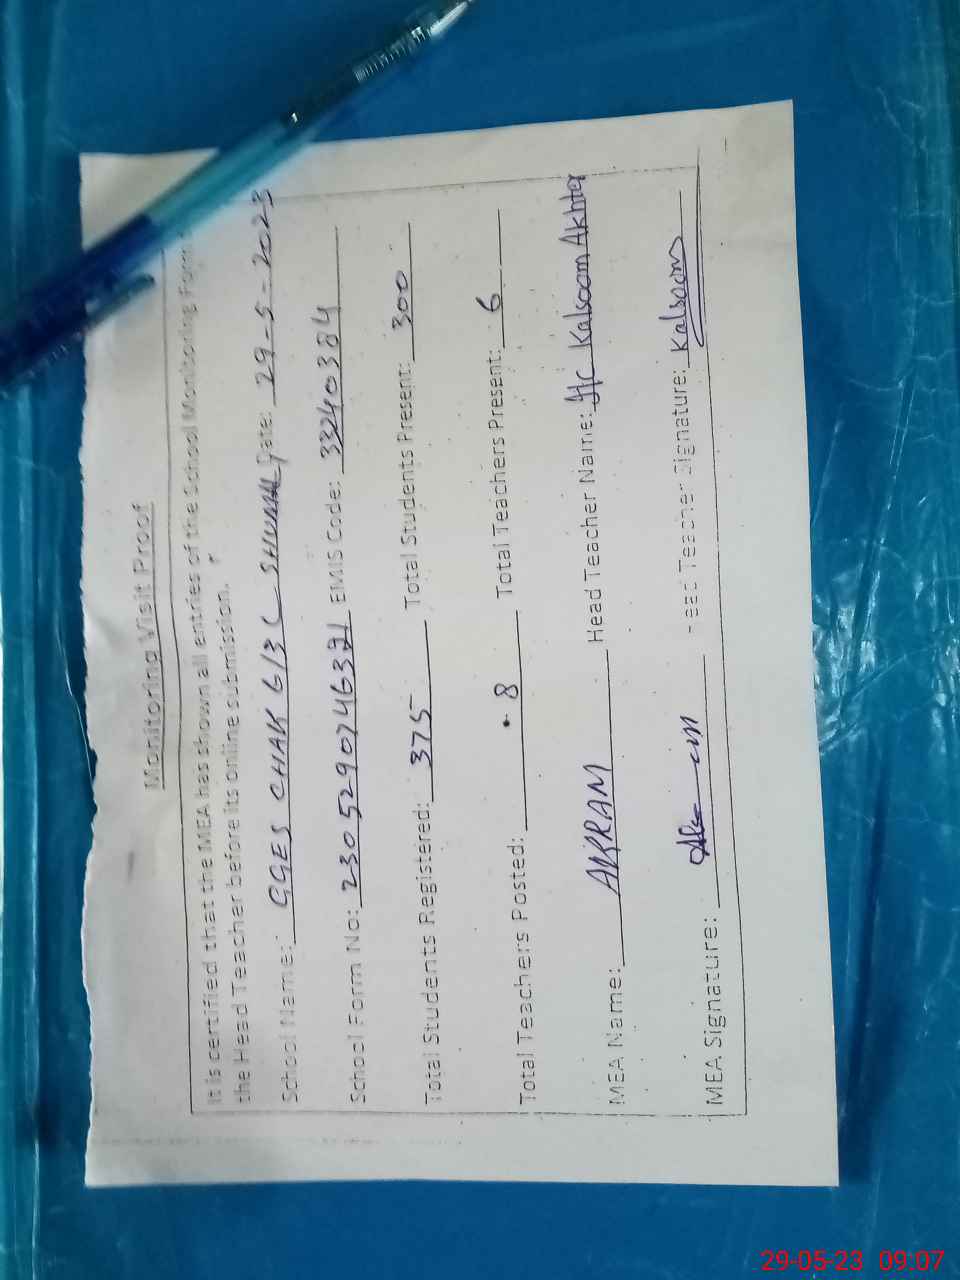 Monitoring Visit Proof
It is certified that the MEA has shown all entries of the School Monitoring Form
the Head Teacher before its online submission.
School Name: GGES CHAK 613 C SHUMAL Date: 29-5-2023
School Form No: EMIS Code: 33240384
Total Students Registered: 375 Total Students Present: 300
Total Teachers Posted: 8 Total Teachers Present: 6
MEA Name: AKRAM Head Teacher Name: Kalsoom Akhter
MEA Signature: Head Teacher Signature: Kalsoom
29-05-23 09:07